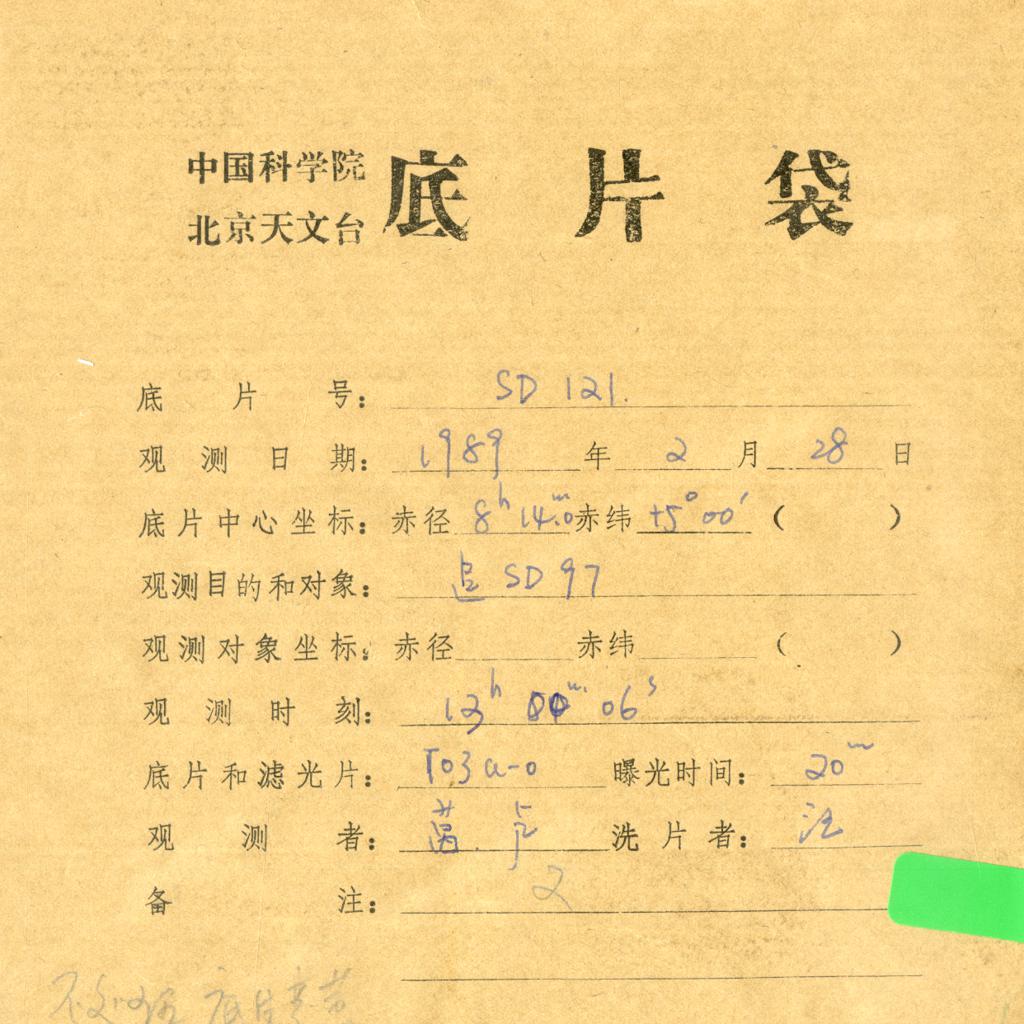 中国科学院
北京天文台
底片袋
底片号： SD 121.
观测日期： 1989 年 2 月 28 日
底片中心坐标：赤径 8h 14m.0 赤纬 +5°00′ （ ）
观测目的和对象： 追 SD 97
观测对象坐标：赤径 赤纬 （ ）
观测时刻： 13h 04m 06s
底片和滤光片： 103a-O 曝光时间： 20m
观测者： 卢 洗片者： 汪
备注： 2